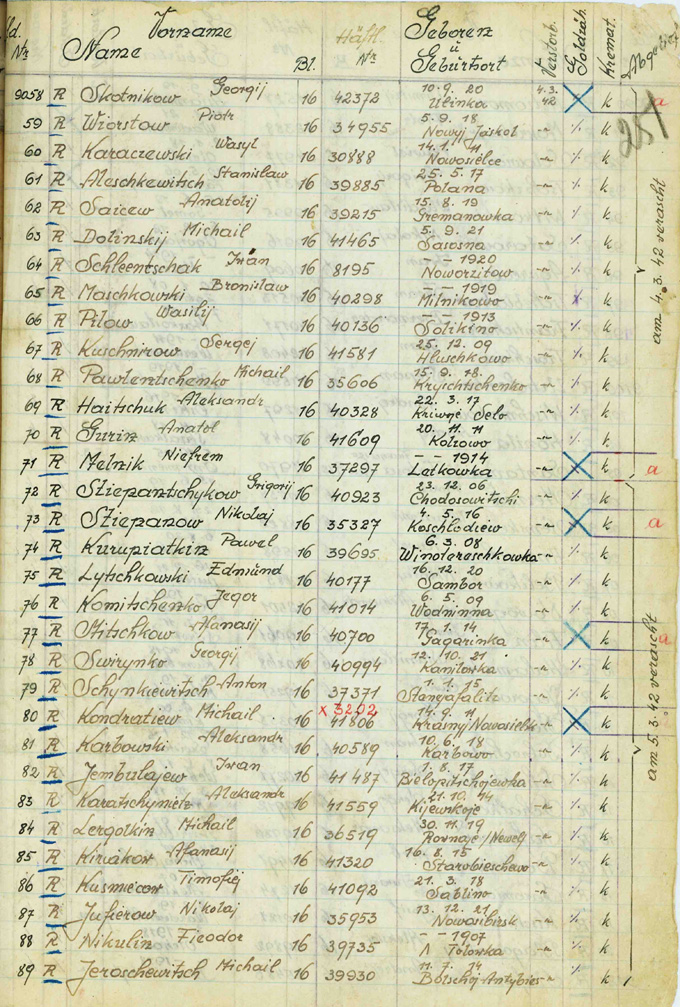 Lfd. Nr Name Vorname Bl. Häftl. Nr Geboren u Geburtsort Verstorb. Goldzäh. Kremat. Abge
9058 R Skotnikow Georgij 16 42372 10.9.20 Ulinka 4.3.42 X k a
59 R Wiorstow Piotr 16 34955 5.9.18 Nowyj Joskol -"- ·/. k
60 R Karaczewski Wasyl 16 30888 14.1.11 Nowosielce -"- ·/. k
61 R Aleschkewitsch Stanislaw 16 39885 25.5.17 Polana -"- ·/. k
62 R Saicew Anatolij 16 39215 15.8.19 Gremanowka -"- ·/. k
63 R Dolinskij Michail 16 41465 5.9.21 Sasosna -"- ·/. k
64 R Schleentschak Iwan 16 8195 – – 1920 Noworzitow -"- ·/. k
65 R Maschkowski Bronislaw 16 40298 – – 1919 Milnikowo -"- ·/. k
66 R Pilow Wasilij 16 40136 – – 1913 Solikino -"- ·/. k
67 R Kuschnirow Sergej 16 41581 25.12.09 Hluschkowo -"- ·/. k
68 R Pawlentschenko Michail 16 35606 15.9.18 Kryschtschenko -"- ·/. k
69 R Haitschuk Aleksandr 16 40328 22.3.17 Kriwoje Selo -"- ·/. k
70 R Gurin Anatol 16 41609 20.11.11 Kotzowo -"- ·/. k
71 R Melnik Niefrem 16 37297 – – 1914 Letkowka -"- X k a
72 R Stiepantschykow Grigorij 16 40923 23.12.06 Chodosowitschi -"- ·/. k
73 R Stiepanow Nikolaj 16 35327 4.5.16 Koschlodiew -"- X k a
74 R Kurupiatkin Pawel 16 39695 6.3.08 Winotereschkowka -"- ·/. k
75 R Lytschkowski Edmund 16 40177 16.12.20 Sambor -"- ·/. k
76 R Komitschenko Jegor 16 41014 6.5.09 Wodninna -"- ·/. k
77 R Stitschkow Afanasij 16 40700 17.1.14 Gagarinka -"- X k a
78 R Swirynko Georgij 16 40994 12.10.21 Kanilowka -"- ·/. k
79 R Schynkiewitsch Anton 16 37371 1.1.15 -"- ·/. k
80 R Kondratiew Michail 16 x 3202 41806 14.9.11 Krasny/Nowosielsk -"- X k
81 R Karbowski Aleksandr 16 40589 10.6.18 Karbowo -"- ·/. k
82 R Jembulajew Iwan 16 41487 1.8.17 Bielopitschojewka -"- ·/. k
83 R Karatschynietz Aleksandr 16 41559 21.10.14 Kijewskoje -"- ·/. k
84 R Lergotkin Michail 16 36519 30.11.19 Rovnoje/Newelj -"- ·/. k
85 R Kiriakow Afanasij 16 41320 16.8.15 Starobieschewo -"- ·/. k
86 R Kusmiecow Timofiej 16 41092 21.3.18 Sablino -"- ·/. k
87 R Jufierow Nikolaj 16 35953 13.12.21 Nowosibirsk -"- ·/. k
88 R Nikulin Fieodor 16 39735 – – 1907 Totowka -"- ·/. k
89 R Jeroschewitsch Michail 16 39930 11.7.14 Bolschoj Antybies -"- ·/. k
251
am 4.3.42 verascht
am 5.3.42 verascht